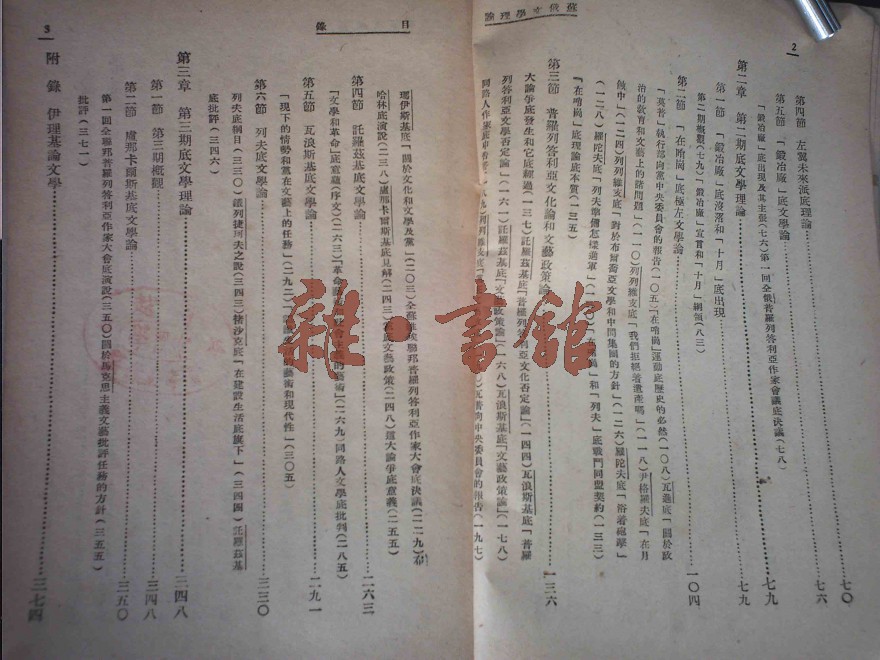 蘇俄文學理論
2
第四節 左翼未來派底理論……七〇
第五節 「鍛冶廠」底文學論……七六
「鍛冶廠」底出現及其主張(七六)第一回全俄普羅列答利亞作家會議底決議(七八)
第二章 第二期底文學理論……七九
第一節 「鍛冶廠」底沒落和「十月」底出現……七九
第二期概觀(七九)「鍛冶廠」宣言和「十月」綱領(八三)
第二節 「在哨崗」底極左文學論……一〇四
「莫普」執行部向黨中央委員會的報告(一〇五)「在哨崗」運動底歷史的必然(一〇八)瓦進底「關於政
治的教育和文藝上的諸問題」(一一〇)列列維支底「我們拒絕着遺產嗎」(一一八)尹格羅夫底「在月
蝕中」(一二四)列列維支底「對於布爾喬亞文學和中間集團的方針」(一二六)羅陀夫底「浴著砲擊」
(一二八)羅陀夫底「列夫準備怎樣進軍」(一三〇)「在哨崗」和「列夫」底戰鬥同盟契約(一三三)
「在哨崗」底理論底本質(一三五)
第三節 普羅列答利亞文化論和文藝政策論……一三六
大論爭底發生和它底經過(一三七)託羅茲基底「普羅列答利亞文化否定論」(一四四)瓦浪斯基底「普羅
列答利亞文學否定論」(一六一)託羅茲基底「文藝政策論」(一六八)瓦浪斯基底「文藝政策論」(一七八)
目錄
3
瑪伊斯基底「關於文化和文學及黨」(二〇三)全蘇維埃聯邦普羅列答利亞作家大會底決議(二二九)布
哈林底演說(二三八)盧那卡爾斯基底見解(二四三)黨底文藝政策(二四八)這大論爭底意義(二五五)
第四節 託羅茲基底文學論……二六三
「文學和革命」底意蘊(序文)(二六三)「革命藝術和社會主義的藝術」(二六九)同路人文學底批判(二八五)
第五節 瓦浪斯基底文學論……二九一
「現下的情勢和黨在文藝上的任務」(二九二)的藝術和現代性」(三〇五)
第六節 列夫底文學論……三三〇
列夫底綱目(三三〇)鐵列捷珂夫之說(三四三)褚沙克底「在建設生活底旗下」(三四四)託羅茲基
底批評(三四六)
第三章 第三期底文學理論……三四八
第一節 第三期概觀……三四八
第二節 盧那卡爾斯基底文學論……三五〇
第一回全聯邦普羅列答利亞作家大會底演說(三五〇)關於馬克思主義文藝批評任務的方針(三五五)
批評(三七一)
附錄 伊理基論文學……三七四
雜·書舘